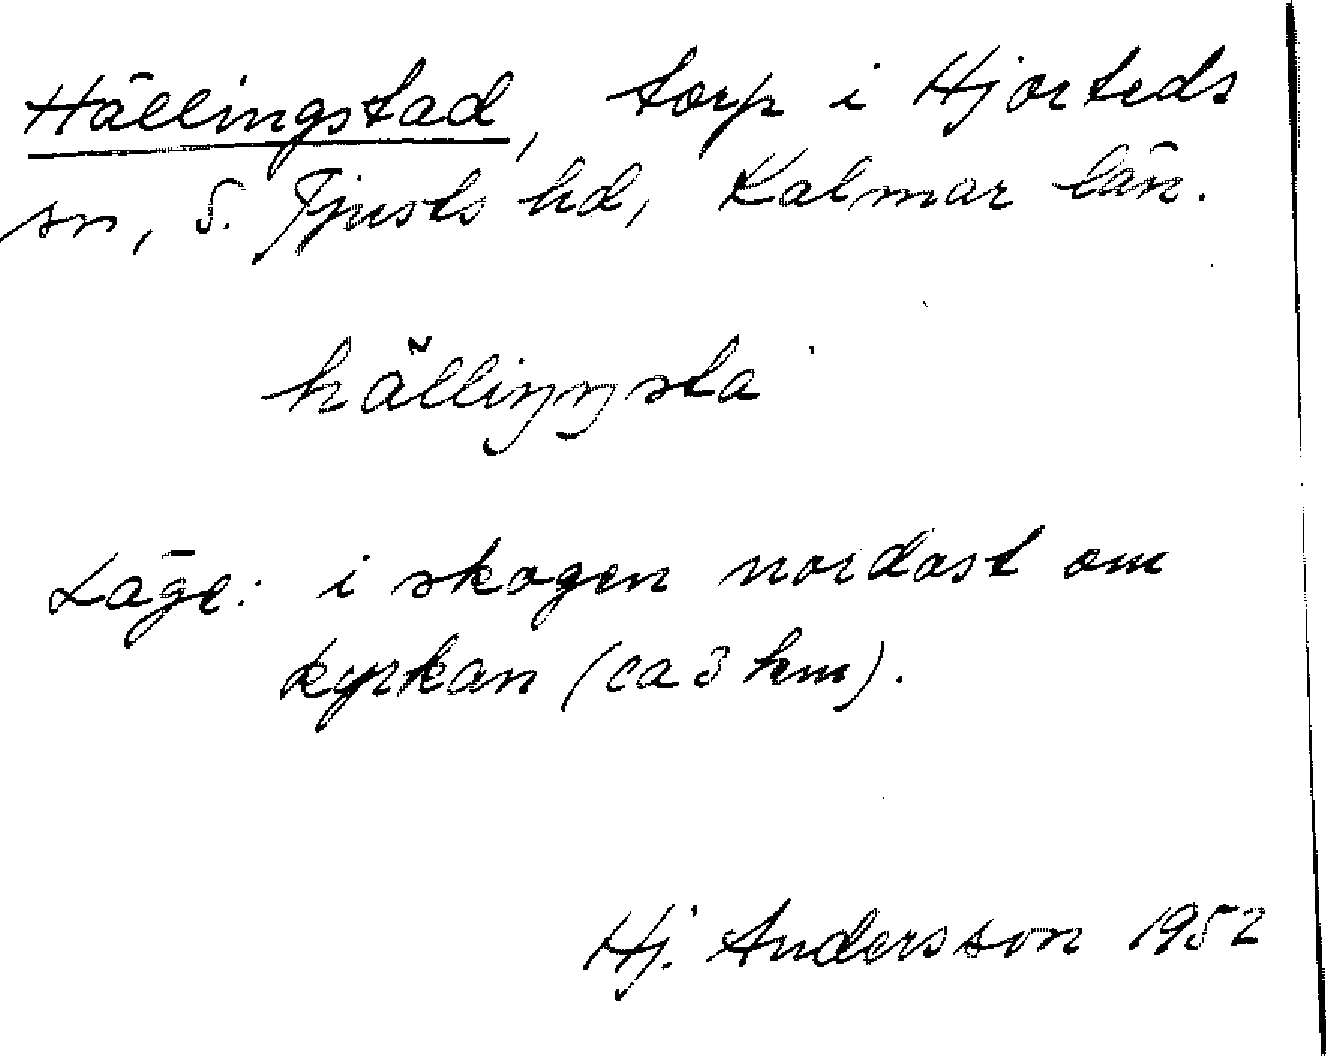 Hällingstad, torp i Hjorteds
sn, S. Tjusts hd, Kalmar län.
hälliŋŋsta
Läge: i skogen nordost om
kyrkan (ca 3 km).
Hj. Andersson 1952